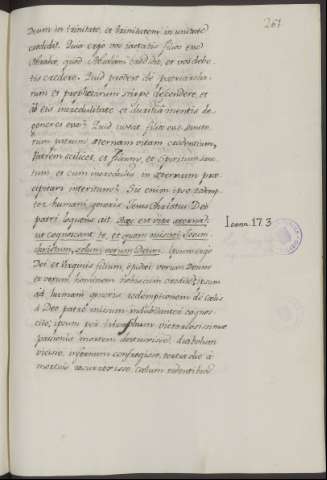 261
Deum in trinitate, et trinitatem in unitate
credidit. Quia ergo vos iactatis filios esse
Abrahæ, quod Abraham credidit, et vos debe-
tis credere. Quid prodest de patriarcha-
rum et prophetarum stirpe descendere, et
ab eis incredulitate et duritia mentis de-
generes esse? Quid iuvat filios esse sancto-
rum patrum æternam vitam credentium,
Patrem scilicet, et filium, et spiritum sanc-
tum, et cum incredulis in æternum præ-
cipitari interitum? Sic enim ipse redemp-
tor humani generis Iesus Christus Deo
patri loquens ait. Hæc est vita æterna:
ut cognoscant te, et quem misisti Iesum
christum, solum verum Deum. Ipsum ergo
Dei et Virginis filium, ipsum verum Deum
et verum hominem nobiscum credite; ipsum
ad humani generis redemptionem de cælis
a Deo patre missum indubitanter cognos-
cite; ipsum per triumphum victoriosissimæ
passionis mortem destruxisse, diabolum
vicisse, infernum confregisse, tertia die a
mortuis resurrexisse, cœlum videntibus
Ioann. 17. 3